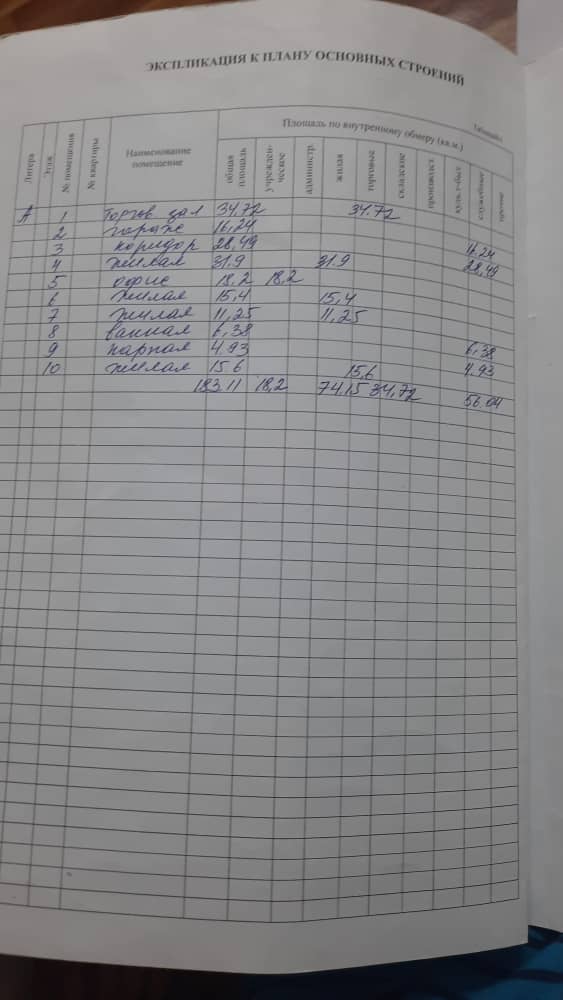 ЭКСПЛИКАЦИЯ К ПЛАНУ ОСНОВНЫХ СТРОЕНИЙ
Литера Этаж № помещения № квартиры Наименование помещение Площадь по внутреннему обмеру (кв.м.)
общая площадь учрежден-ческое администр. жилая торговые складские производст. культ-быт служебные прочие
А 1 торгов. зал 34.72 34.72
2 гараж 16,24 16.24
3 коридор 28,49 28,49
4 жилая 31.9 31.9
5 офис 18,2 18,2
6 жилая 15,4 15,4
7 жилая 11,25 11,25
8 ванная 6,38 6,38
9 парная 4.93 4.93
10 жилая 15.6 15,6
183.11 18,2 74.15 34,72 56.04